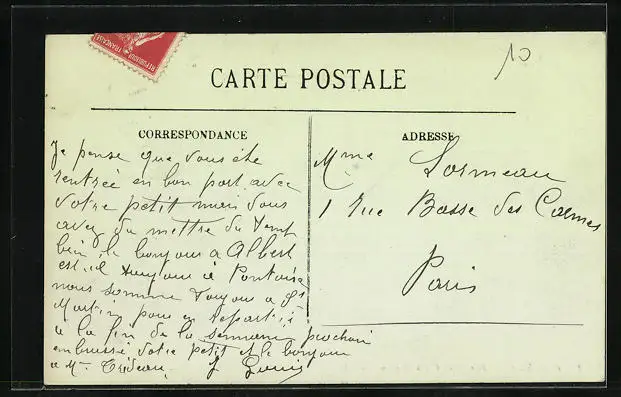 10
REPUBLIQUE FRANÇAISE
CARTE POSTALE
CORRESPONDANCE
ADRESSE
Je pense que vous ete
rentrée en bon port avec
votre petit mari vous
avez du mettre du temp
bien le bonjour a Albert
est il toujour a Pontoise
nous somme toujour a St
Martin pour en repartir
a la fin de la semaine prochain
embrasse votre petit et le bonjour
a Mr
Mme Lormeau
1 Rue Basse des Carmes
Paris